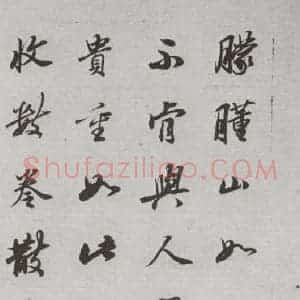 朦胧山如
不肯與人
貴重如此
收数卷散
Shufaziliao.COM